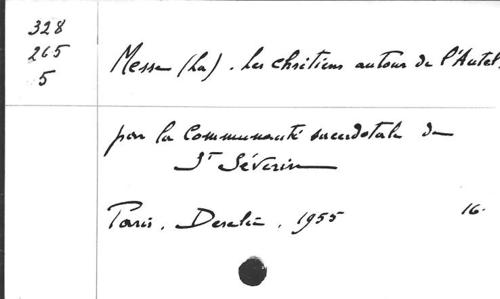 328
265
5
Messe (La). Les chrétiens autour de l'Autel.
par la Communauté sacerdotale de
St Séverin
Paris, Desclée, 1955 16.